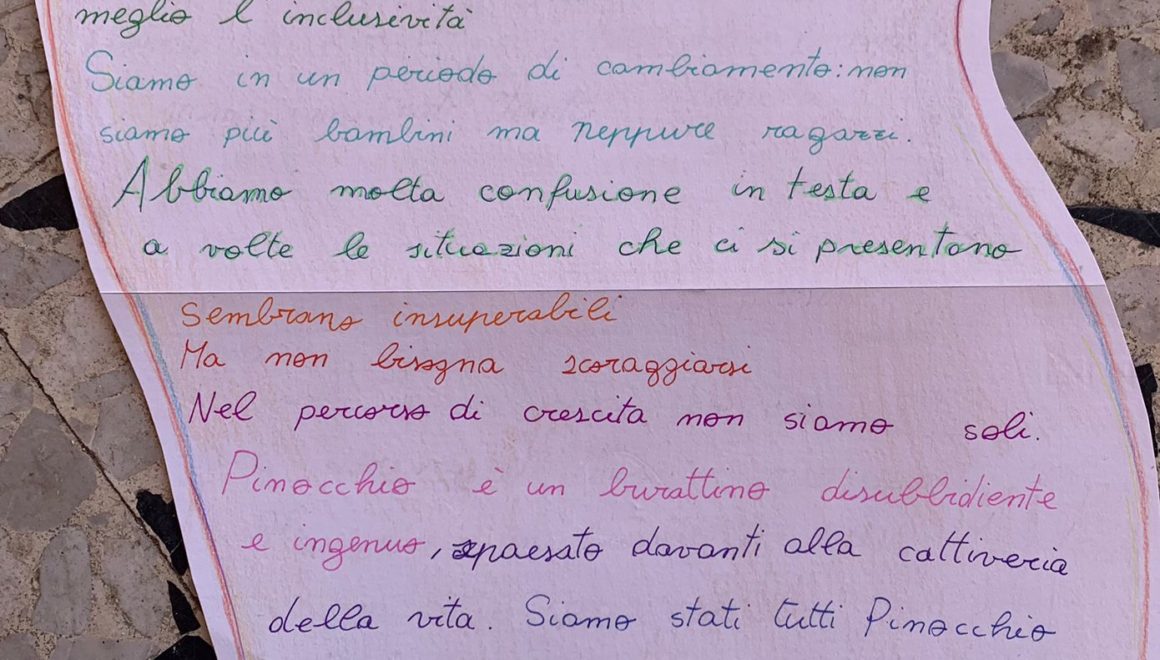 meglio l inclusività
Siamo in un periodo di cambiamento: non
siamo più bambini ma neppure ragazzi.
Abbiamo molta confusione in testa e
a volte le situazioni che ci si presentano
Sembrano insuperabili
Ma non bisogna scoraggiarsi
Nel percorso di crescita non siamo soli.
Pinocchio è un burattino disubbidiente
e ingenuo, spaesato davanti alla cattiveria
della vita. Siamo stati tutti Pinocchio